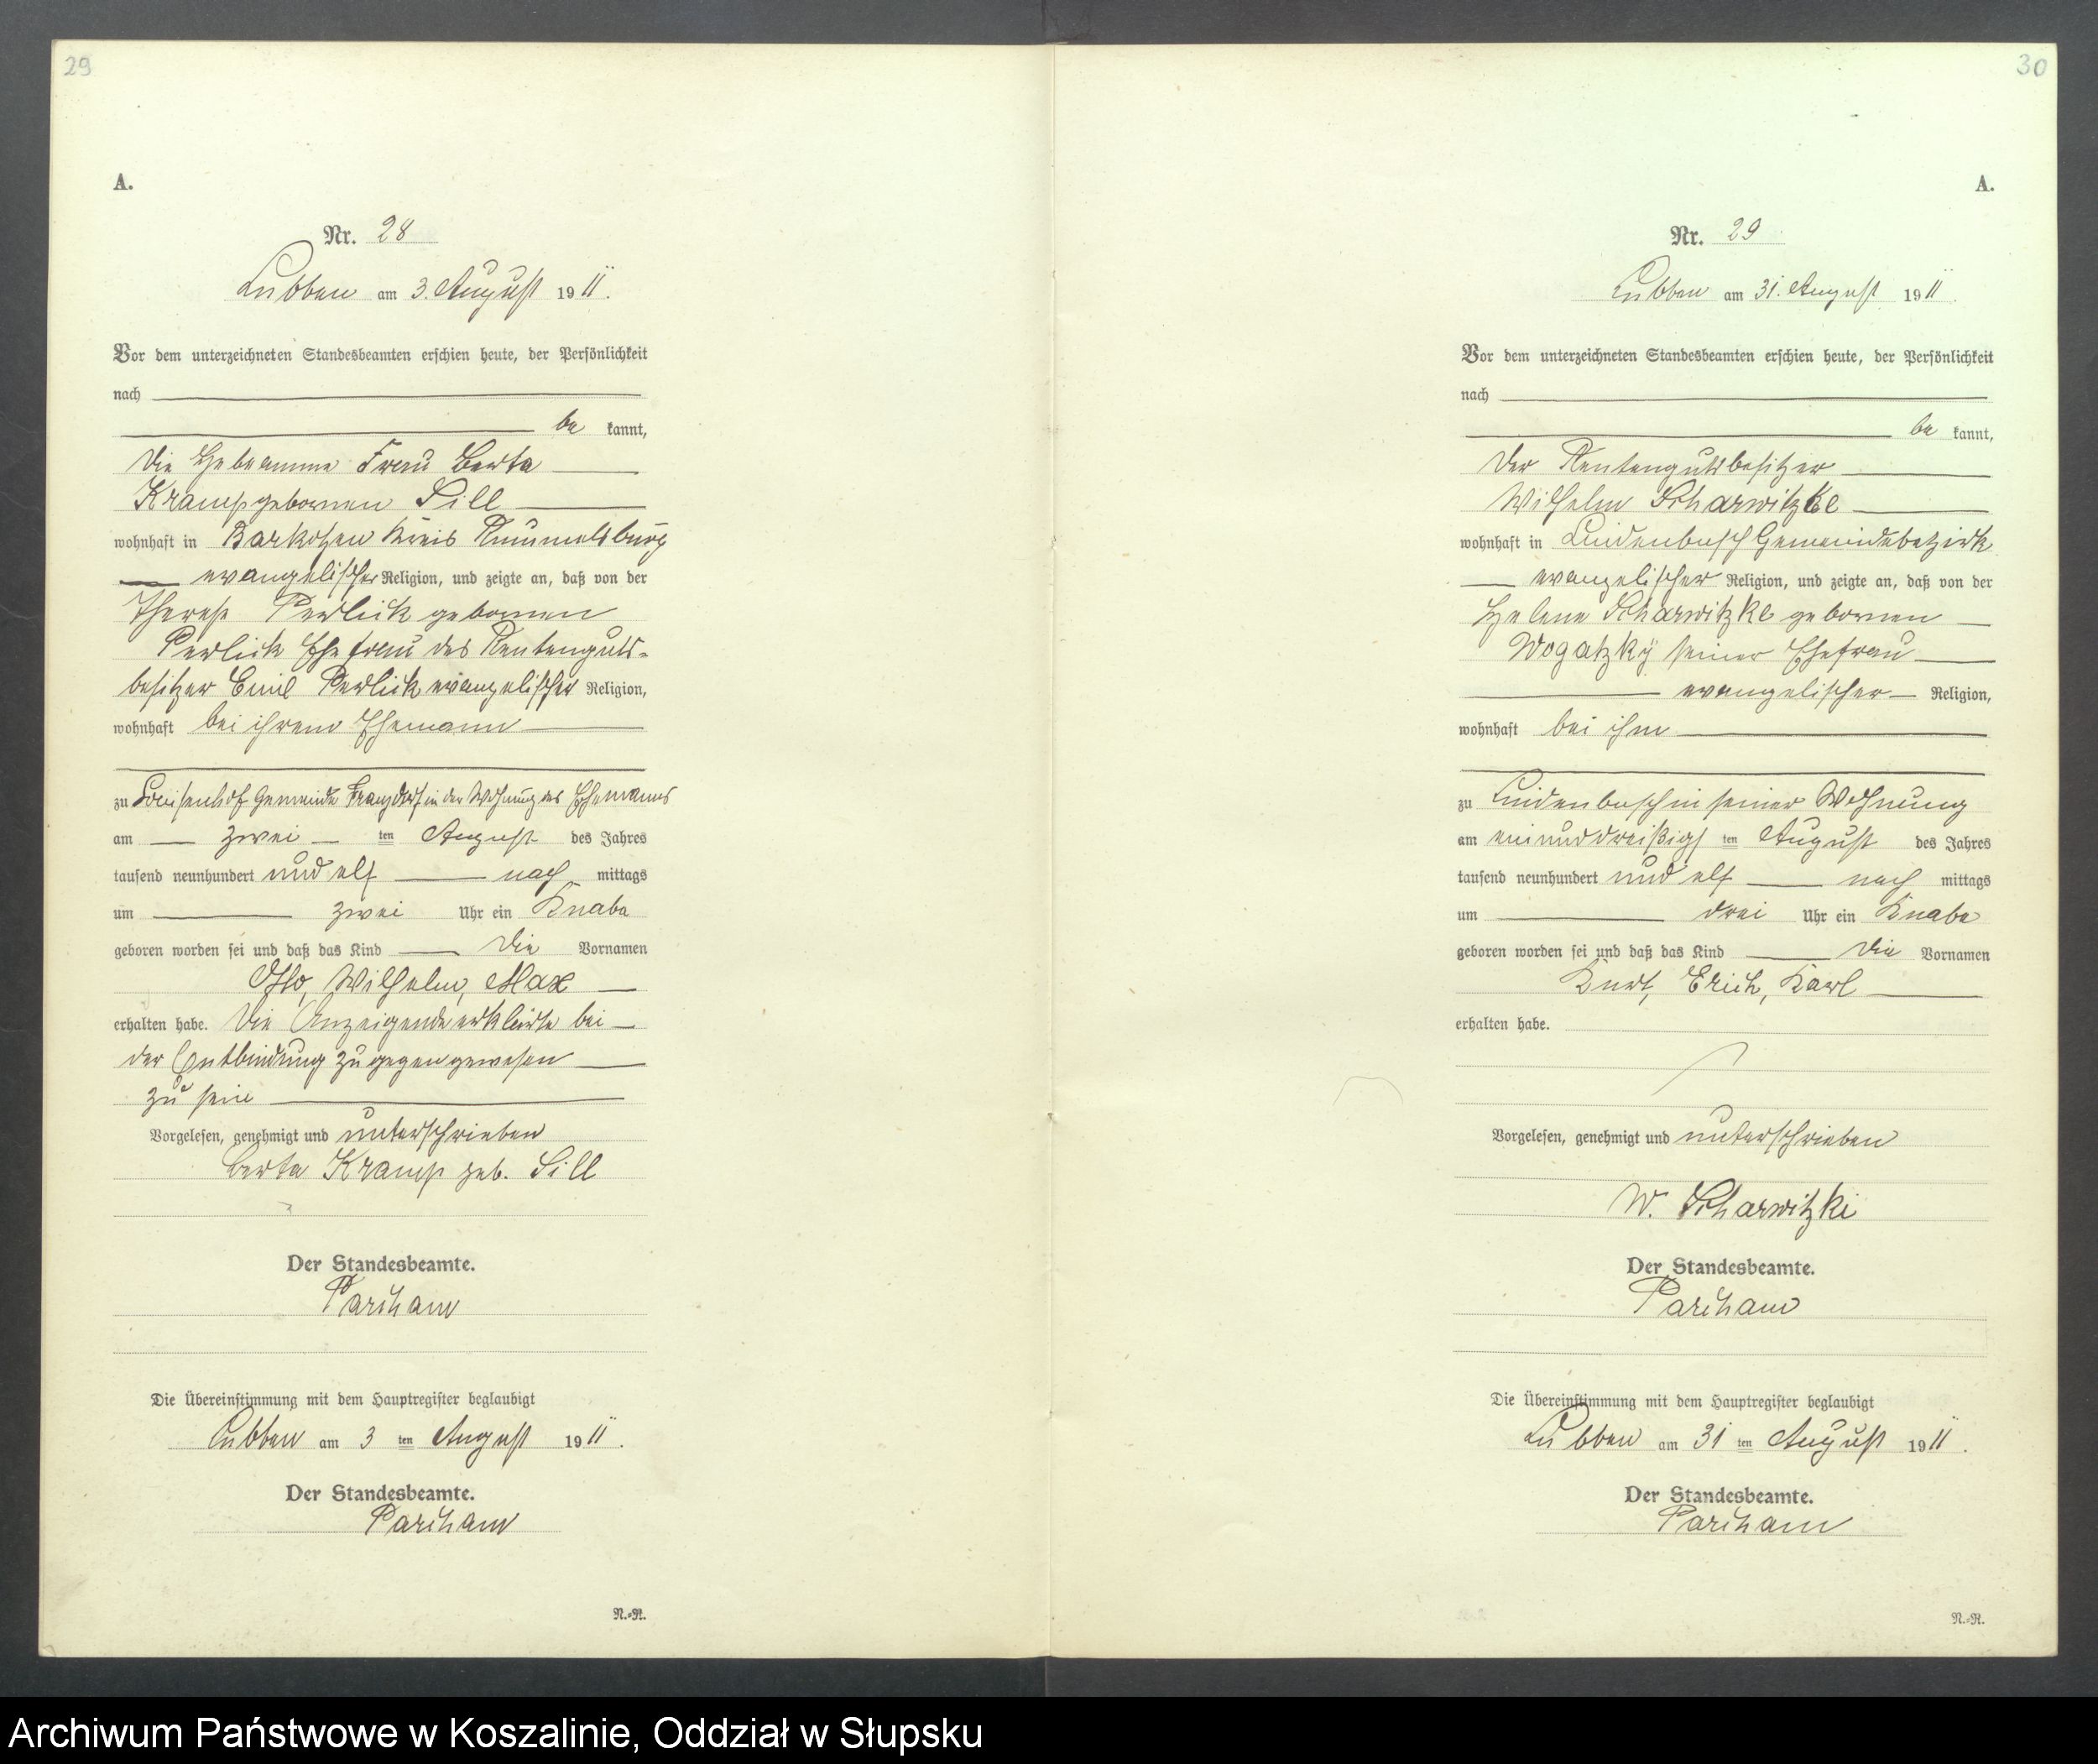 29
A.
Nr. 28
Lubben am 3. August 1911.
Vor dem unterzeichneten Standesbeamten erschien heute, der Persönlichkeit
nach
be kannt,
die Hebeamme Frau Berta
Kramp gebornen Sill
wohnhaft in Barkotzen Kreis Rummelsburg
evangelischer Religion, und zeigte an, daß von der
Therese Perlick gebornen
Perlick Ehefrau des Rentenguts-
besitzer Emil Perlick evangelischer Religion,
wohnhaft bei ihrem Ehemann
zu Louisenhof Gemeinde Franzdorf in der Wohnung des Ehemanns
am zwei ten August des Jahres
tausend neunhundert und elf nach mittags
um zwei Uhr ein Knabe
geboren worden sei und daß das Kind die Vornamen
Otto, Wilhelm, Max
erhalten habe. Die Anzeigende erklärte bei
der Entbindung zugegen gewesen
zu sein
Vorgelesen, genehmigt und unterschrieben
Berta Kramp geb. Sill
Der Standesbeamte.
Parcham
Die Übereinstimmung mit dem Hauptregister beglaubigt
Lubben am 3 ten August 1911.
Der Standesbeamte.
Parcham
N.-R.
30
A.
Nr. 29
Lubben am 31. August 1911.
Vor dem unterzeichneten Standesbeamten erschien heute, der Persönlichkeit
nach
be kannt,
der Rentengutsbesitzer
Wilhelm Scharwitzke
wohnhaft in Lindenbusch Gemeindebezirk
evangelischer Religion, und zeigte an, daß von der
Helene Scharwitzke gebornen
Wogatzky seiner Ehefrau
evangelischer Religion,
wohnhaft bei ihm
zu Lindenbusch in seiner Wohnung
am einunddreißigs ten August des Jahres
tausend neunhundert und elf nach mittags
um drei Uhr ein Knabe
geboren worden sei und daß das Kind die Vornamen
Kurt, Erich, Karl
erhalten habe.
Vorgelesen, genehmigt und unterschrieben
W. Scharwitzki
Der Standesbeamte.
Parcham
Die Übereinstimmung mit dem Hauptregister beglaubigt
Lubben am 31 ten August 1911.
Der Standesbeamte.
Parcham
N.-R.
Archiwum Państwowe w Koszalinie, Oddział w Słupsku